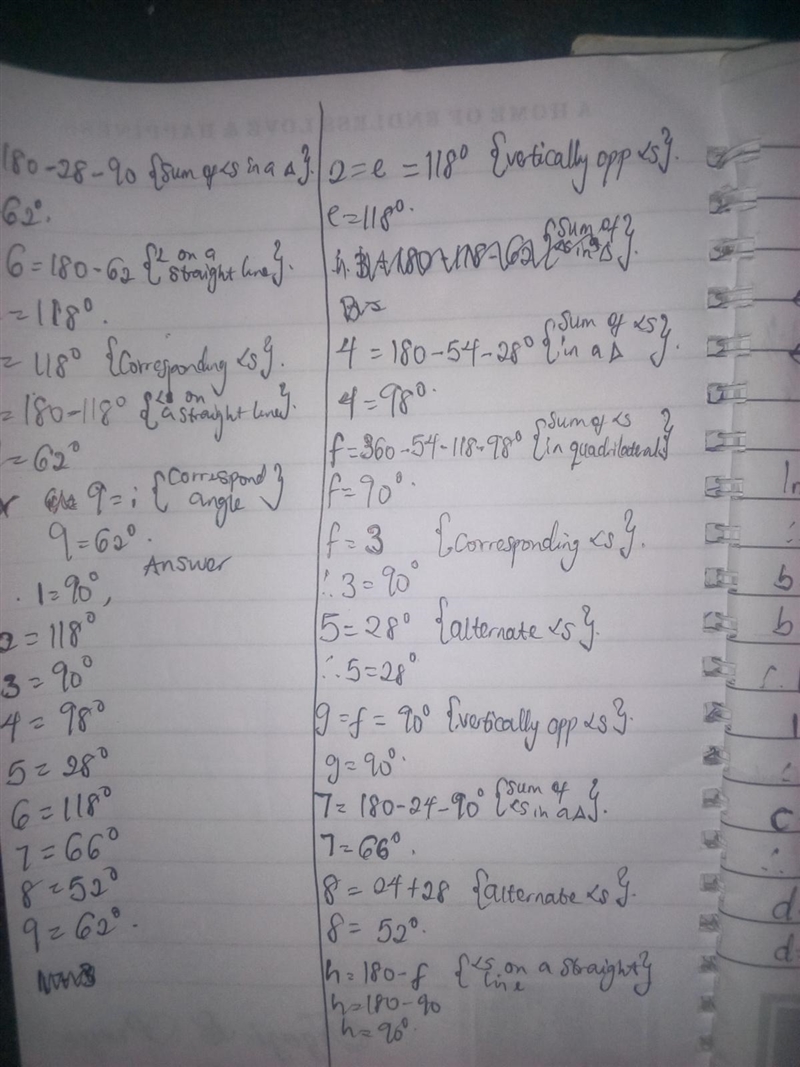 180-28-90 {Sum of <s in a Δ}.
62°.
6 = 180-62 {< on a straight line}.
= 118°.
= 118° {Corresponding <s}.
= 180-118° {<s on a straight line}.
= 62°
9 = i {Correspond angle}
9 = 62°.
Answer
1 = 90°,
2 = 118°
3 = 90°
4 = 98°
5 = 28°
6 = 118°
7 = 66°
8 = 52°
9 = 62°.
2 = e = 118° {vertically opp <s}.
e = 118°.
4 = 180-54-28° {Sum of <s in a Δ}.
4 = 98°.
f = 360-54-118-98° {Sum of <s in quadilateral}
f = 90°.
f = 3 {Corresponding <s}.
∴ 3 = 90°
5 = 28° {alternate <s}.
∴ 5 = 28°
g = f = 90° {vertically opp <s}.
g = 90°.
7 = 180-24-90° {Sum of <s in a Δ}.
7 = 66°.
8 = 24+28 {alternate <s}.
8 = 52°.
h = 180-f {<s on a straight line}
h = 180-90
h = 90°.